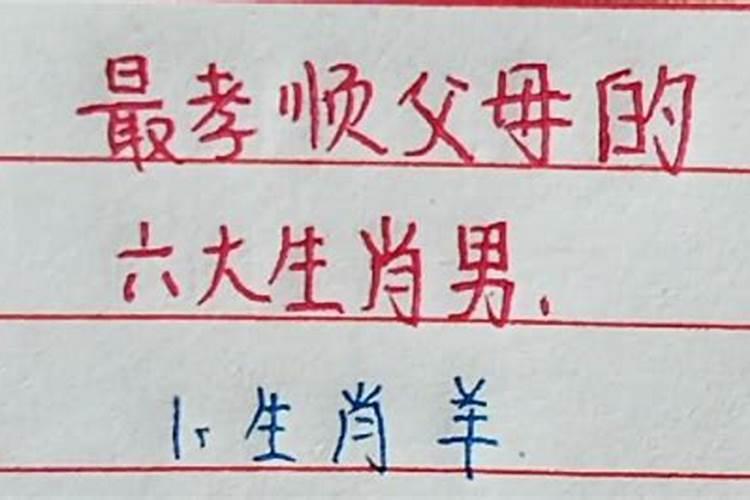 最孝顺父母的
六大生肖男.
1、生肖羊.